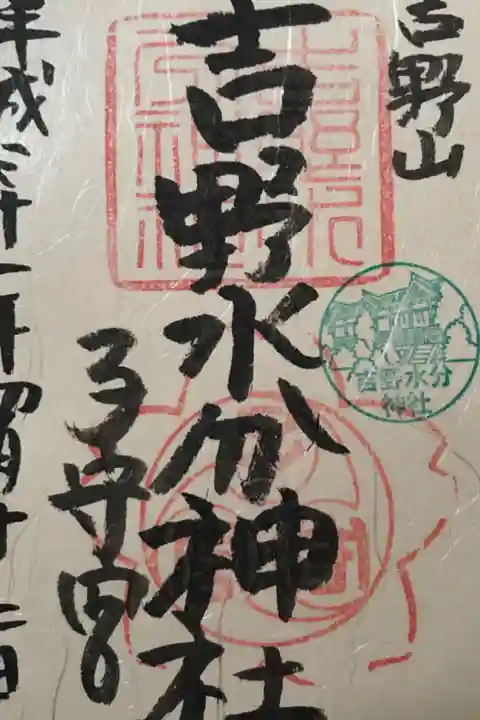 吉野山
吉野水分神社
子守宮
年成二十一年四月十二日
吉野水分
神社